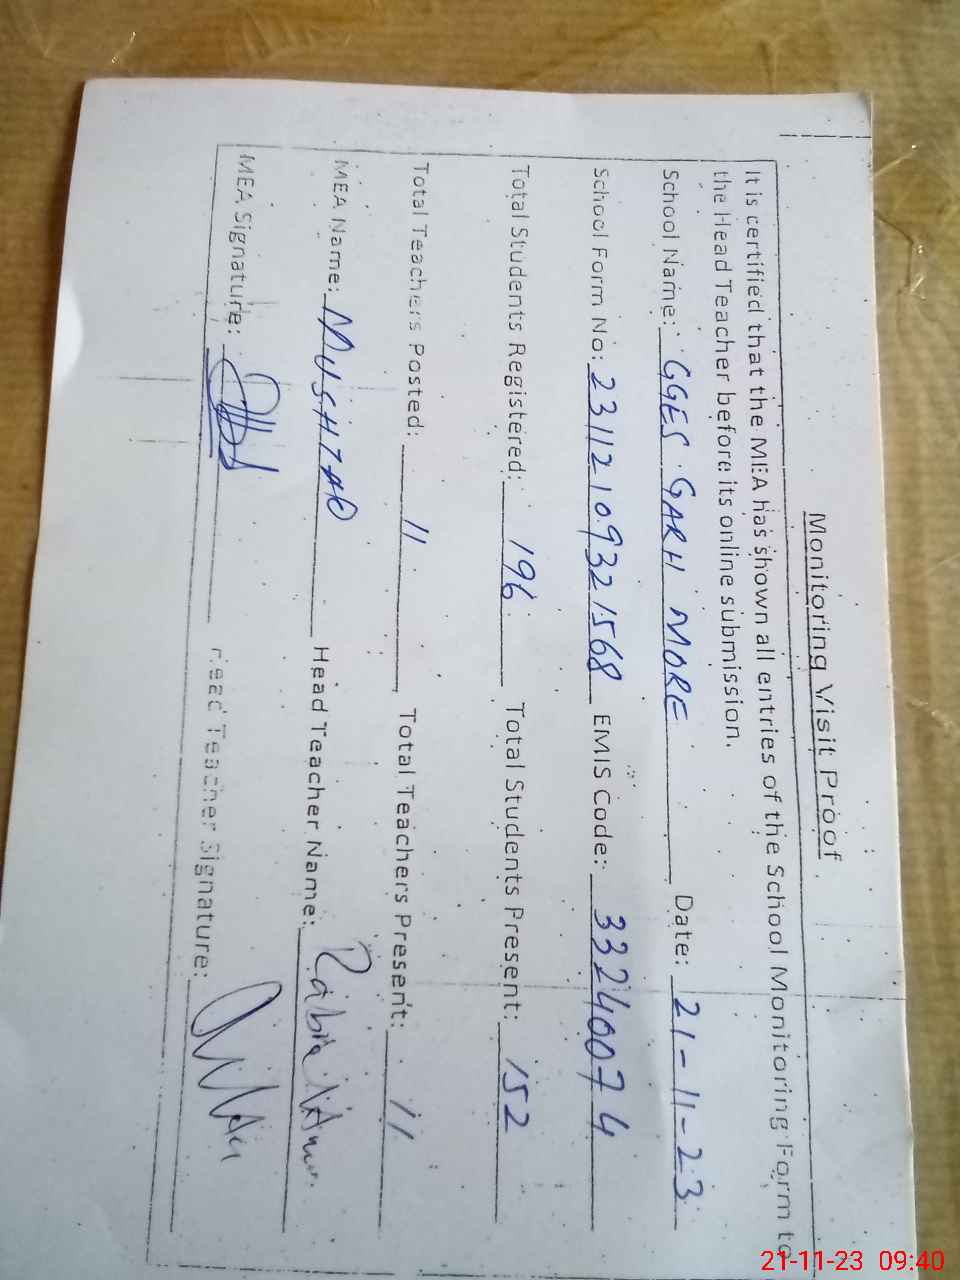 Monitoring Visit Proof
It is certified that the MEA has shown all entries of the School Monitoring Form to
the Head Teacher before its online submission.
School Name: GGES GARH MORE Date: 21-11-23
School Form No: 23112109321568 EMIS Code: 33240074
Total Students Registered: 196 Total Students Present: 152
Total Teachers Posted: 11 Total Teachers Present: 11
MEA Name: MUSHTAQ Head Teacher Name: Rabia
MEA Signature: Head Teacher Signature:
21-11-23 09:40